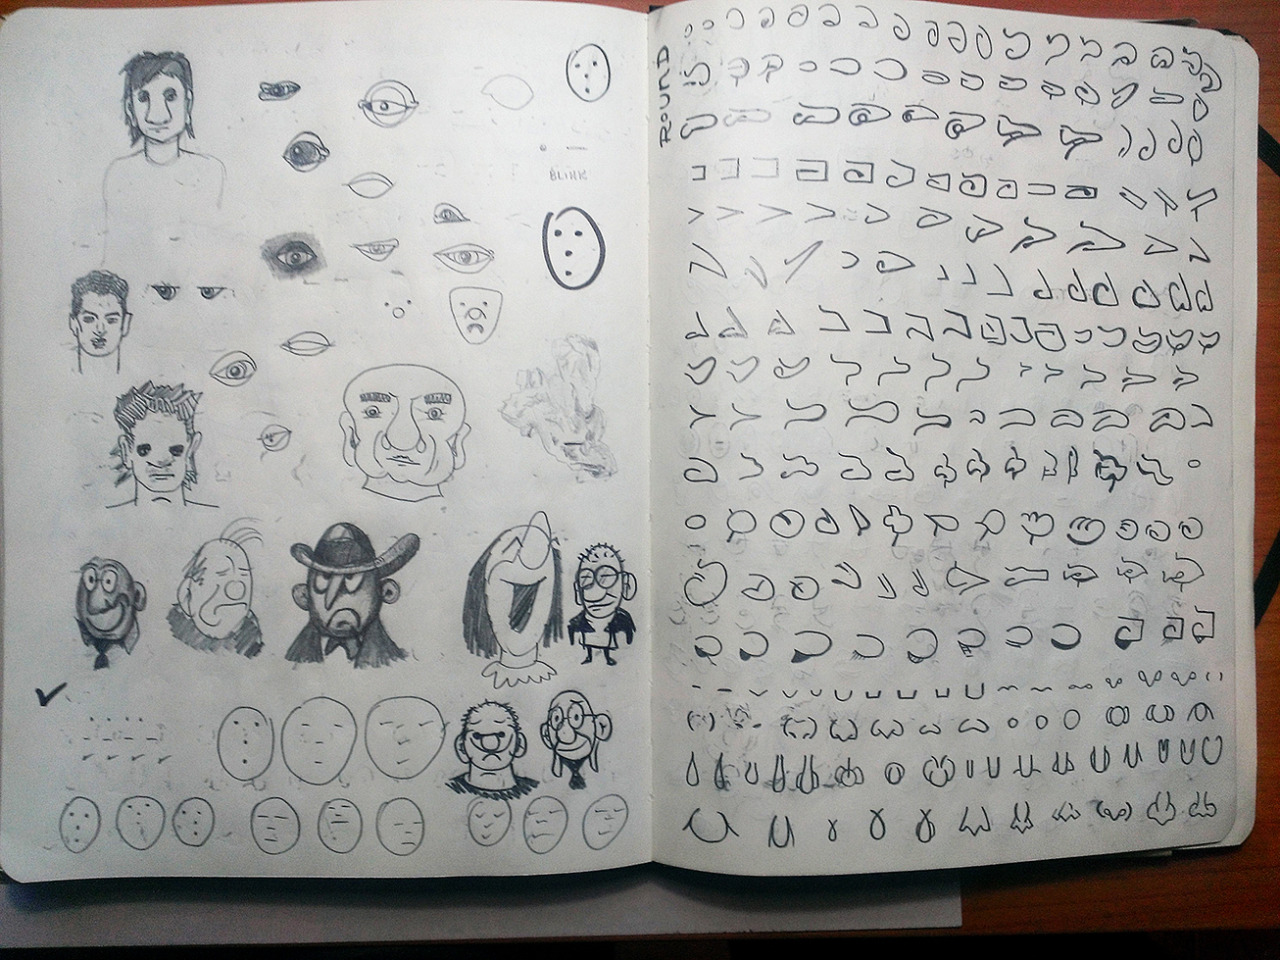 BLINK
ROUND